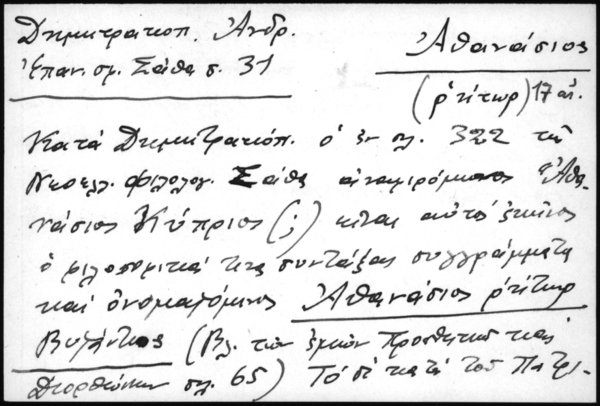 Δημητρακοπ. Ἀνδρ.
Ἐπαν. σφ. Σάθα σ. 31
Ἀθανάσιος
(ῥήτωρ) 17 αἰ.
Κατά Δημητρακόπ. ὁ ἐν σελ. 322 τῆς
Νεοελλ. φιλολογ. Σάθα ἀναφερόμενος Ἀθα-
νάσιος Κύπριος (;) εἶναι αὐτός ἐκεῖνος
ὁ φιλοσοφικά τινα συντάξας συγγράμματα
καί ὀνομαζόμενος Ἀθανάσιος ῥήτωρ
Βυζάντιος (Βλ. τῶν ἐμῶν Προσθηκῶν καί
Διορθώσεων σελ. 65) Τό δέ κατά τοῦ Πατρι-